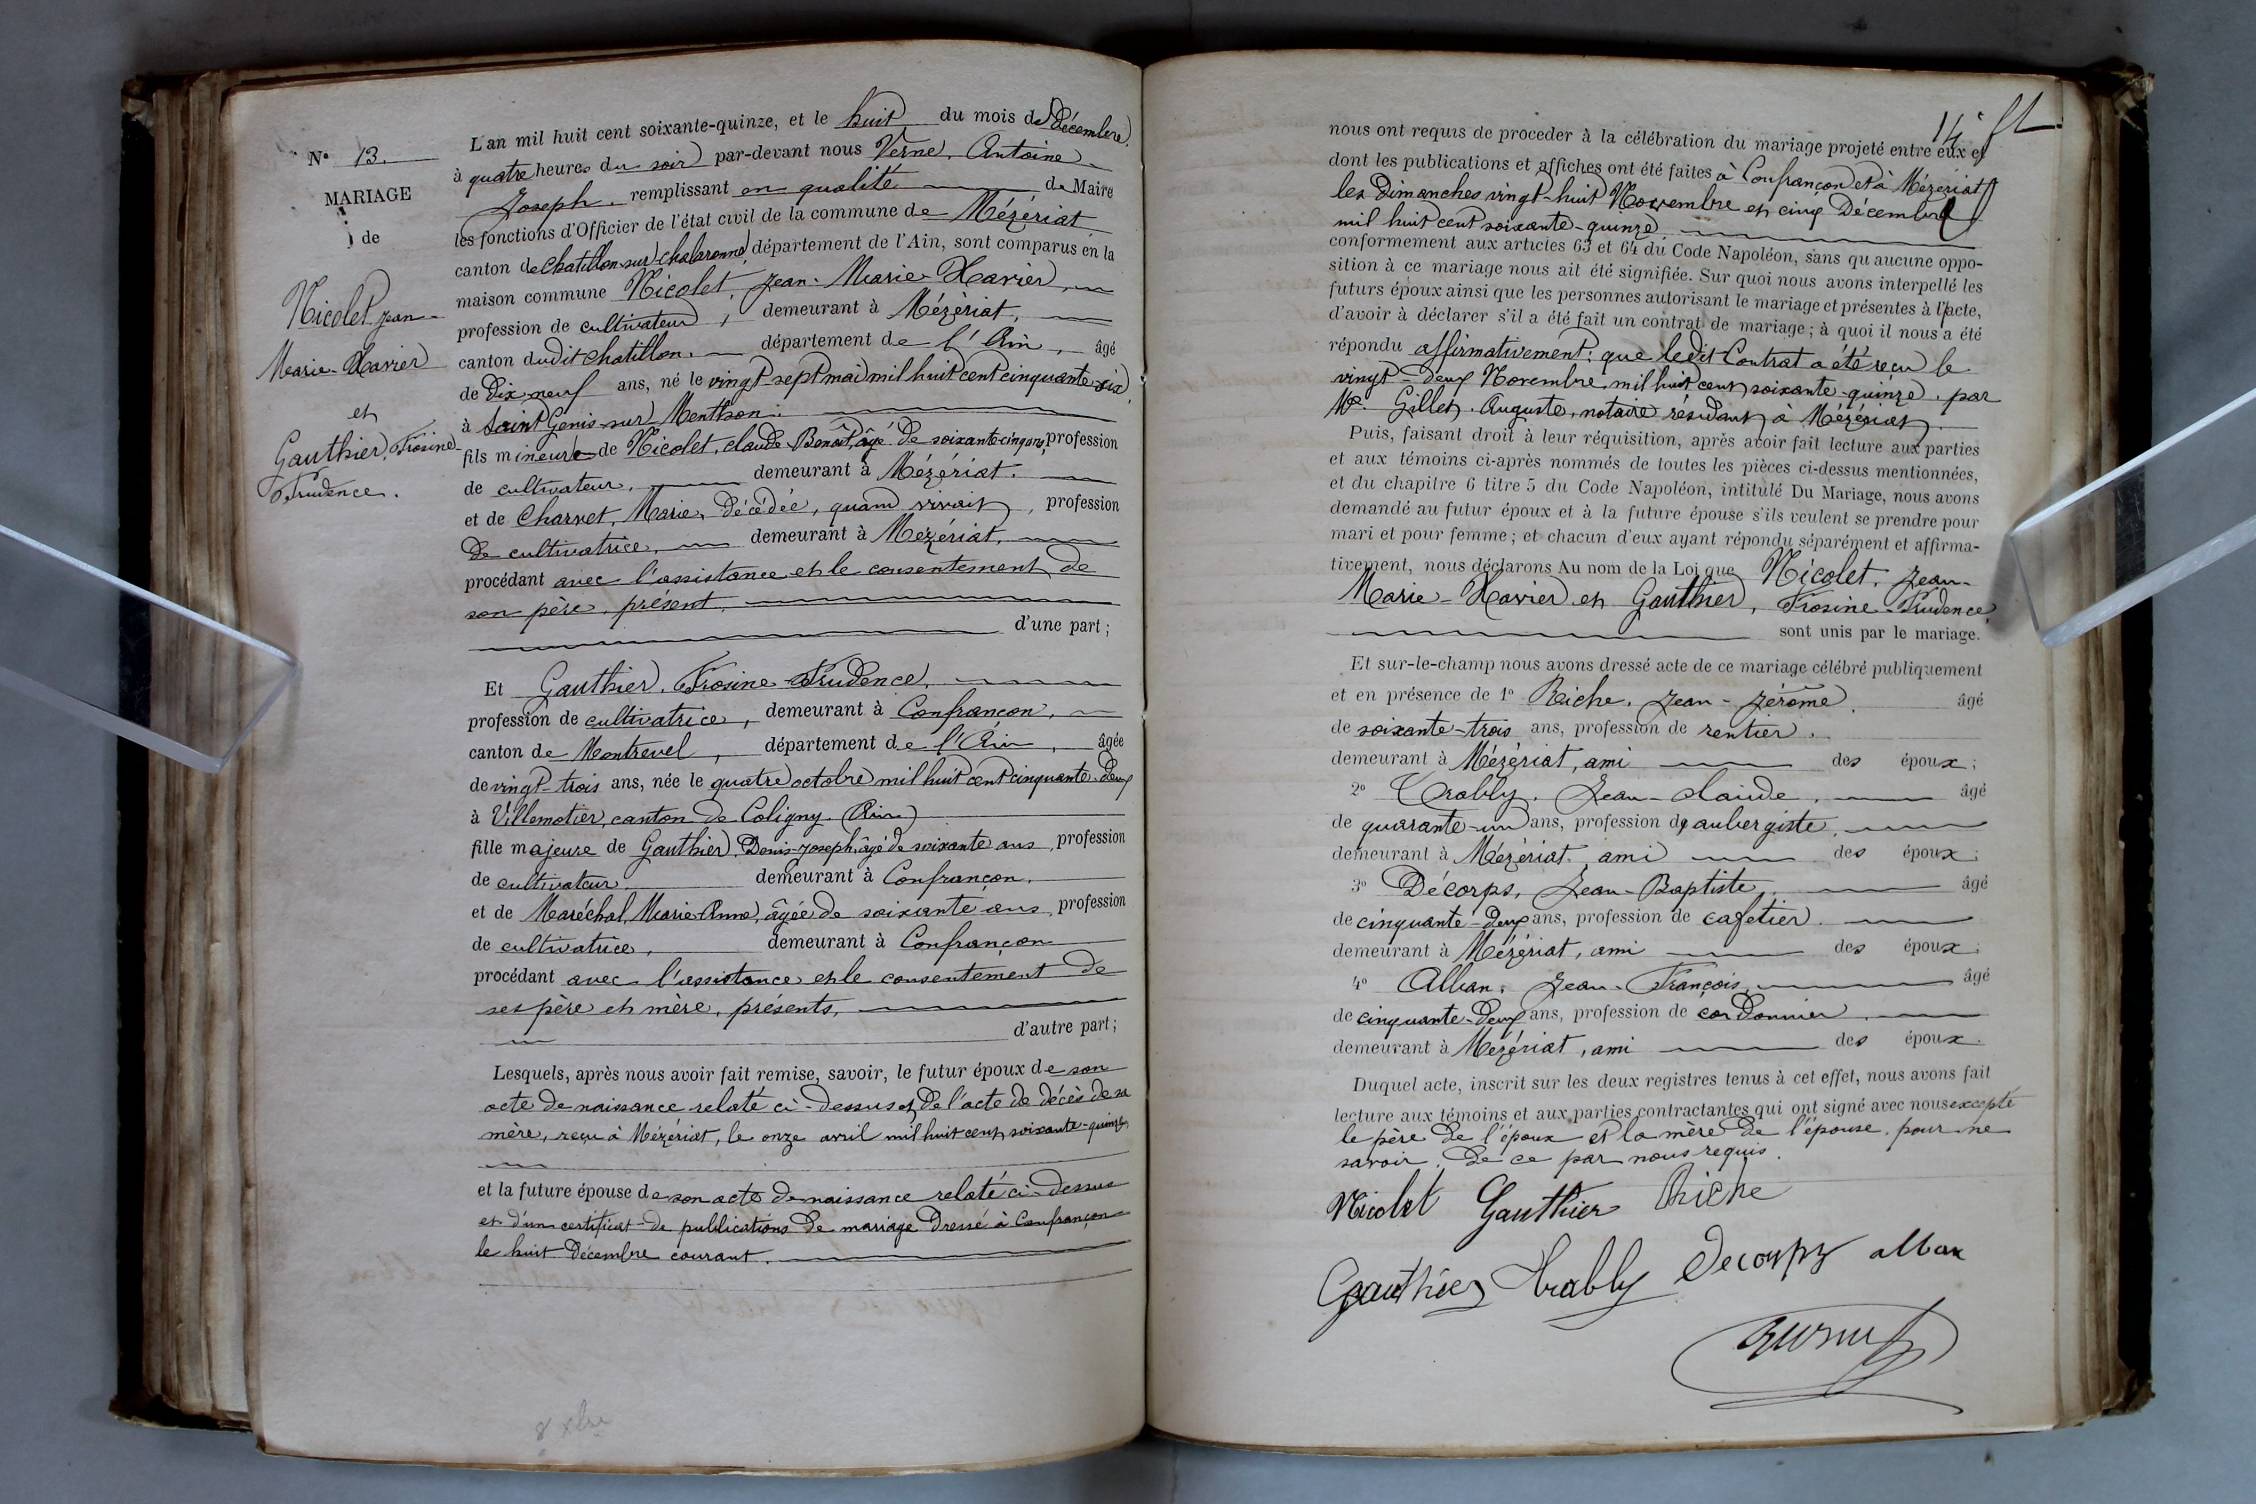 N° 13.
MARIAGE
de
Nicolet Jean-
Marie-Xavier
et
Gauthier, Frosine-
Prudence.
L'an mil huit cent soixante-quinze, et le huit du mois de Décembre,
à quatre heures du soir par-devant nous Verne, Antoine-
Joseph, remplissant en qualité de Maire
les fonctions d'Officier de l'état civil de la commune de Mézériat
canton de Chatillon-sur-Chalaronne, département de l'Ain, sont comparus en la
maison commune Nicolet, Jean-Marie-Xavier,
profession de cultivateur, demeurant à Mézériat,
canton dudit Chatillon, département de l'Ain, âgé
de Dix-neuf ans, né le vingt-sept mai mil huit cent cinquante-six,
à Saint Genis-sur-Menthon.
fils mineur de Nicolet, Claude-Benoît, âgé de soixante-cinq ans, profession
de cultivateur, demeurant à Mézériat.
et de Charvet, Marie, décédée, quand vivait, profession
de cultivatrice, demeurant à Mézériat,
procédant avec l'assistance et le consentement de
son père, présent,
d'une part;
Et Gauthier, Frosine-Prudence,
profession de cultivatrice, demeurant à Confrançon,
canton de Montrevel, département de l'Ain, âgée
de vingt-trois ans, née le quatre octobre mil huit cent cinquante-deux
à Villemotier, canton de Coligny (Ain)
fille majeure de Gauthier, Denis-Joseph, âgé de soixante ans, profession
de cultivateur demeurant à Confrançon,
et de Maréchal, Marie-Anne, âgée de soixante ans, profession
de cultivatrice, demeurant à Confrançon
procédant avec l'assistance et le consentement de
ses père et mère, présents,
d'autre part;
Lesquels, après nous avoir fait remise, savoir, le futur époux de son
acte de naissance relaté ci-dessus et de l'acte de décès de sa
mère, reçu à Mézériat, le onze avril mil huit cent soixante-quinze,
et la future épouse de son acte de naissance relaté ci-dessus
et d'un certificat de publications de mariage dressé à Confrançon
le huit Décembre courant.
8 xbre
14
nous ont requis de proceder à la célébration du mariage projeté entre eux et
dont les publications et affiches ont été faites à Confrançon et à Mézériat
les Dimanches vingt-huit Novembre et cinq Décembre
mil huit cent soixante-quinze,
conformement aux articles 63 et 64 du Code Napoléon, sans qu'aucune oppo-
sition à ce mariage nous ait été signifiée. Sur quoi nous avons interpellé les
futurs époux ainsi que les personnes autorisant le mariage et présentes à l'acte,
d'avoir à déclarer s'il a été fait un contrat de mariage; à quoi il nous a été
répondu affirmativement: que ledit Contrat a été reçu le
vingt-deux Novembre mil huit cent soixante-quinze, par
Me. Gillet, Auguste, notaire résidant à Mézériat,
Puis, faisant droit à leur réquisition, après avoir fait lecture aux parties
et aux témoins ci-après nommés de toutes les pièces ci-dessus mentionnées,
et du chapitre 6 titre 5 du Code Napoléon, intitulé Du Mariage, nous avons
demandé au futur époux et à la future épouse s'ils veulent se prendre pour
mari et pour femme; et chacun d'eux ayant répondu séparément et affirma-
tivement, nous déclarons Au nom de la Loi que Nicolet, Jean-
Marie-Xavier et Gauthier, Frosine-Prudence,
sont unis par le mariage.
Et sur-le-champ nous avons dressé acte de ce mariage célébré publiquement
et en présence de 1° Riche, Jean-Jérôme, âgé
de soixante-trois ans, profession de rentier,
demeurant à Mézériat, ami des époux;
2° Trably, Jean-Claude, âgé
de quarante-un ans, profession d'aubergiste,
demeurant à Mézériat, ami des époux;
3° Décorps, Jean-Baptiste, âgé
de cinquante-deux ans, profession de cafetier.
demeurant à Mézériat, ami des époux;
4° Alban, Jean-François, âgé
de cinquante-deux ans, profession de cordonnier,
demeurant à Mézériat, ami des époux.
Duquel acte, inscrit sur les deux registres tenus à cet effet, nous avons fait
lecture aux témoins et aux parties contractantes qui ont signé avec nous excepté
le père de l'époux et la mère de l'épouse, pour ne
savoir, de ce par nous requis.
Nicolet Gauthier Riche
Gauthier Trably Decorps alban